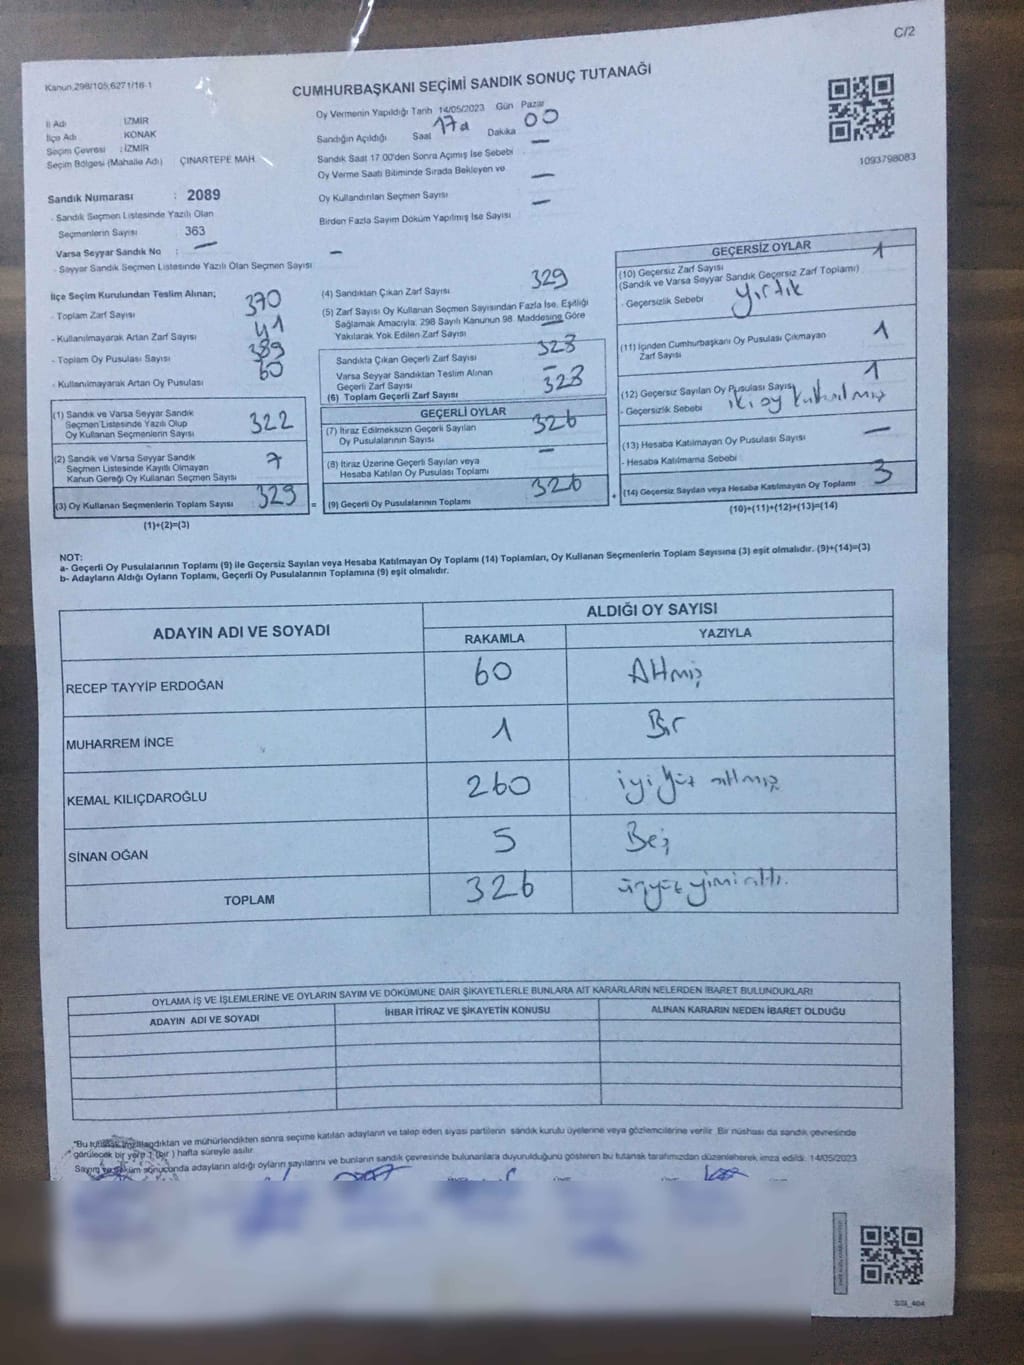 C/2
Kanun,298/105;6271/16-1
CUMHURBAŞKANI SEÇİMİ SANDIK SONUÇ TUTANAĞI
İl Adı İZMİR
İlçe Adı KONAK
Seçim Çevresi : İZMİR
Seçim Bölgesi (Mahalle Adı) ÇINARTEPE MAH.
Oy Vermenin Yapıldığı Tarih 14/05/2023 Gün Pazar
Sandığın Açıldığı Saat 17 Dakika 00
Sandık Saat 17.00'den Sonra Açımış İse Sebebi —
Oy Verme Saati Bitiminde Sırada Bekleyen ve
Oy Kullandırılan Seçmen Sayısı —
Birden Fazla Sayım Döküm Yapılmış İse Sayısı —
1093798083
Sandık Numarası : 2089
- Sandık Seçmen Listesinde Yazılı Olan
Seçmenlerin Sayısı 363
Varsa Seyyar Sandık No : —
- Seyyar Sandık Seçmen Listesinde Yazılı Olan Seçmen Sayısı —
İlçe Seçim Kurulundan Teslim Alınan;
- Toplam Zarf Sayısı 370
- Kullanılmayarak Artan Zarf Sayısı 41
- Toplam Oy Pusulası Sayısı 389
- Kullanılmayarak Artan Oy Pusulası 60
(1) Sandık ve Varsa Seyyar Sandık
Seçmen Listesinde Yazılı Olup
Oy Kullanan Seçmenlerin Sayısı 322
(2) Sandık ve Varsa Seyyar Sandık
Seçmen Listesinde Kayıtlı Olmayan
Kanun Gereği Oy Kullanan Seçmen Sayısı 7
(3) Oy Kullanan Seçmenlerin Toplam Sayısı 329 =
(1)+(2)=(3)
(4) Sandıktan Çıkan Zarf Sayısı 329
(5) Zarf Sayısı Oy Kullanan Seçmen Sayısından Fazla İse, Eşitliği
Sağlamak Amacıyla; 298 Sayılı Kanunun 98. Maddesine Göre
Yakılarak Yok Edilen Zarf Sayısı —
Sandıkta Çıkan Geçerli Zarf Sayısı 328
Varsa Seyyar Sandıktan Teslim Alınan
Geçerli Zarf Sayısı —
(6) Toplam Geçerli Zarf Sayısı 328
GEÇERLİ OYLAR
(7) İtiraz Edilmeksizin Geçerli Sayılan
Oy Pusulalarının Sayısı 326
(8) İtiraz Üzerine Geçerli Sayılan veya
Hesaba Katılan Oy Pusulası Toplamı —
(9) Geçerli Oy Pusulalarının Toplamı 326 +
GEÇERSİZ OYLAR
(10) Geçersiz Zarf Sayısı 1
(Sandık ve Varsa Seyyar Sandık Geçersiz Zarf Toplamı)
- Geçersizlik Sebebi yırtık
(11) İçinden Cumhurbaşkanı Oy Pusulası Çıkmayan
Zarf Sayısı 1
(12) Geçersiz Sayılan Oy Pusulası Sayısı 1
- Geçersizlik Sebebi iki oy
(13) Hesaba Katılmayan Oy Pusulası Sayısı —
- Hesaba Katılmama Sebebi
(14) Geçersiz Sayılan veya Hesaba Katılmayan Oy Toplamı 3
(10)+(11)+(12)+(13)=(14)
NOT:
a- Geçerli Oy Pusulalarının Toplamı (9) ile Geçersiz Sayılan veya Hesaba Katılmayan Oy Toplamı (14) Toplamları, Oy Kullanan Seçmenlerin Toplam Sayısına (3) eşit olmalıdır. (9)+(14)=(3)
b- Adayların Aldığı Oyların Toplamı, Geçerli Oy Pusulalarının Toplamına (9) eşit olmalıdır.
ADAYIN ADI VE SOYADI
ALDIĞI OY SAYISI
RAKAMLA YAZIYLA
RECEP TAYYİP ERDOĞAN 60 Altmış
MUHARREM İNCE 1 Bir
KEMAL KILIÇDAROĞLU 260 iyi yüz altmış
SİNAN OĞAN 5 Beş
TOPLAM 326 üçyüz yimi altı.
OYLAMA İŞ VE İŞLEMLERİNE VE OYLARIN SAYIM VE DÖKÜMÜNE DAİR ŞİKAYETLERLE BUNLARA AİT KARARLARIN NELERDEN İBARET BULUNDUKLARI
ADAYIN ADI VE SOYADI İHBAR İTİRAZ VE ŞİKAYETİN KONUSU ALINAN KARARIN NEDEN İBARET OLDUĞU
"Bu tutanak imzalandıktan ve mühürlendikten sonra seçime katılan adayların ve talep eden siyasi partilerin sandık kurulu üyelerine veya gözlemcilerine verilir. Bir nüshası da sandık çevresinde
görülecek bir yere 1 (bir ) hafta süreyle asılır.
Sayım ve döküm sonucunda adayların aldığı oyların sayılarını ve bunların sandık çevresinde bulunanlara duyurulduğunu gösteren bu tutanak tarafımızdan düzenlenerek imza edildi. 14/05/2023